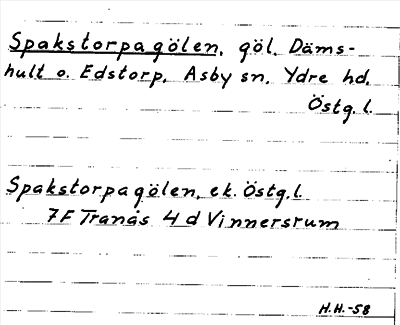 Spakstorpagölen, göl, Däms-
hult o. Edstorp, Asby sn, Ydre hd,
Östg. l.
Spakstorpagölen, ek. Östg. l.
7F Tranås 4 d Vinnersrum
H.H.-58